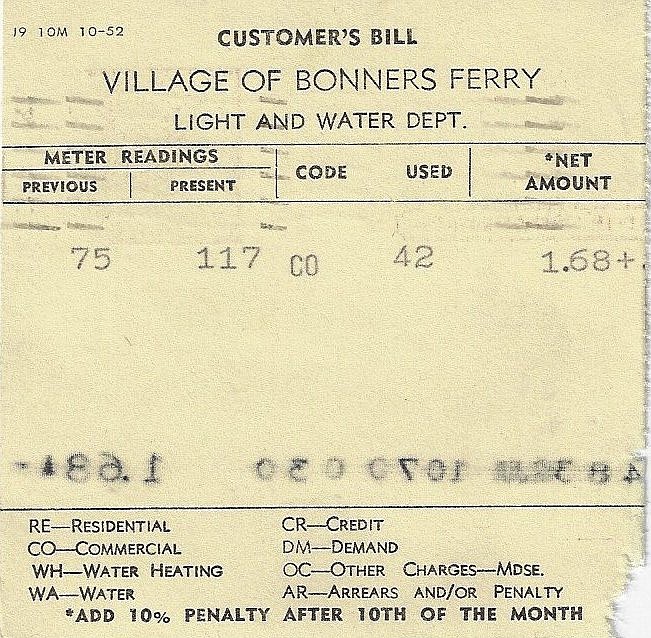 J9 10M 10-52
CUSTOMER'S BILL
VILLAGE OF BONNERS FERRY
LIGHT AND WATER DEPT.
METER READINGS
PREVIOUS PRESENT CODE USED *NET AMOUNT
75 117 CO 42 1.68+
1.68
RE—RESIDENTIAL CR—CREDIT
CO—COMMERCIAL DM—DEMAND
WH—WATER HEATING OC—OTHER CHARGES—MDSE.
WA—WATER AR—ARREARS AND/OR PENALTY
*ADD 10% PENALTY AFTER 10TH OF THE MONTH